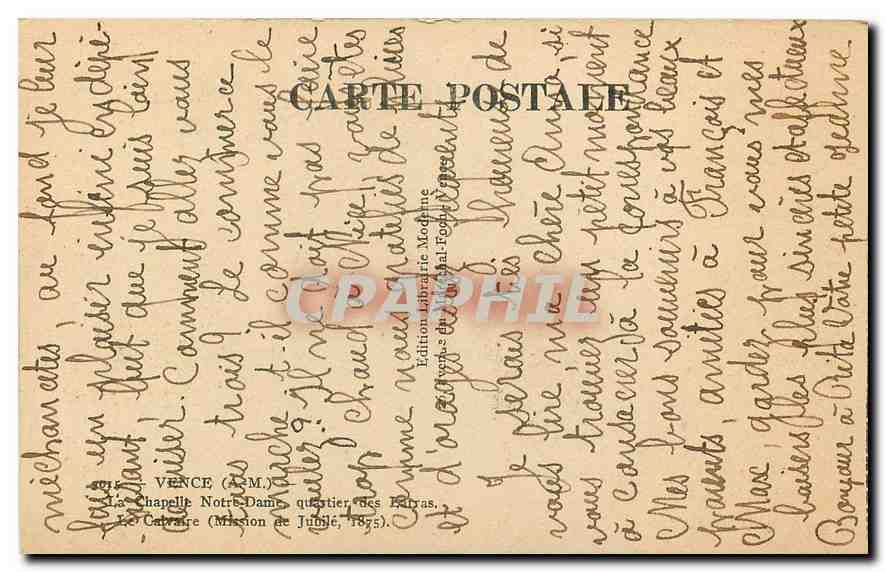 CARTE POSTALE
méchancetés, au fond je leur
fais un plaisir infini en dépé-
chant but que je puis loin
Comment allez vous
tous trois? Le commerce
marche t-il comme vous le
voulez? Il ne doit pas faire
trop chaud à Nice, vous êtes
comme nous gratifiés de pluies
et d'orages
Je serais très heureuse de
vous lire, ma chère Anna si
vous trouvez un petit moment
à consacrer à la correspondance
Mes bons souvenirs à vos beaux
parents, amitiés à François et
Max, gardez pour vous mes
baisers les plus sincères et affectueux
Bonjour à Votre petite
Edition Librairie Moderne
Avenue du Maréchal-Foch, Vence
CPAPHIL
2015 - VENCE (A.-M.) -
La Chapelle Notre-Dame, quartier des Larras.
Le Calvaire (Mission de Jubilé, 1875).